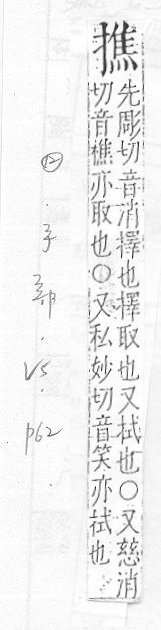 㩌
先彫切音消擇也擇取也又拭也○又慈消
切音樵亦取也○又私妙切音笑亦拭也
手部.V5.
p62.